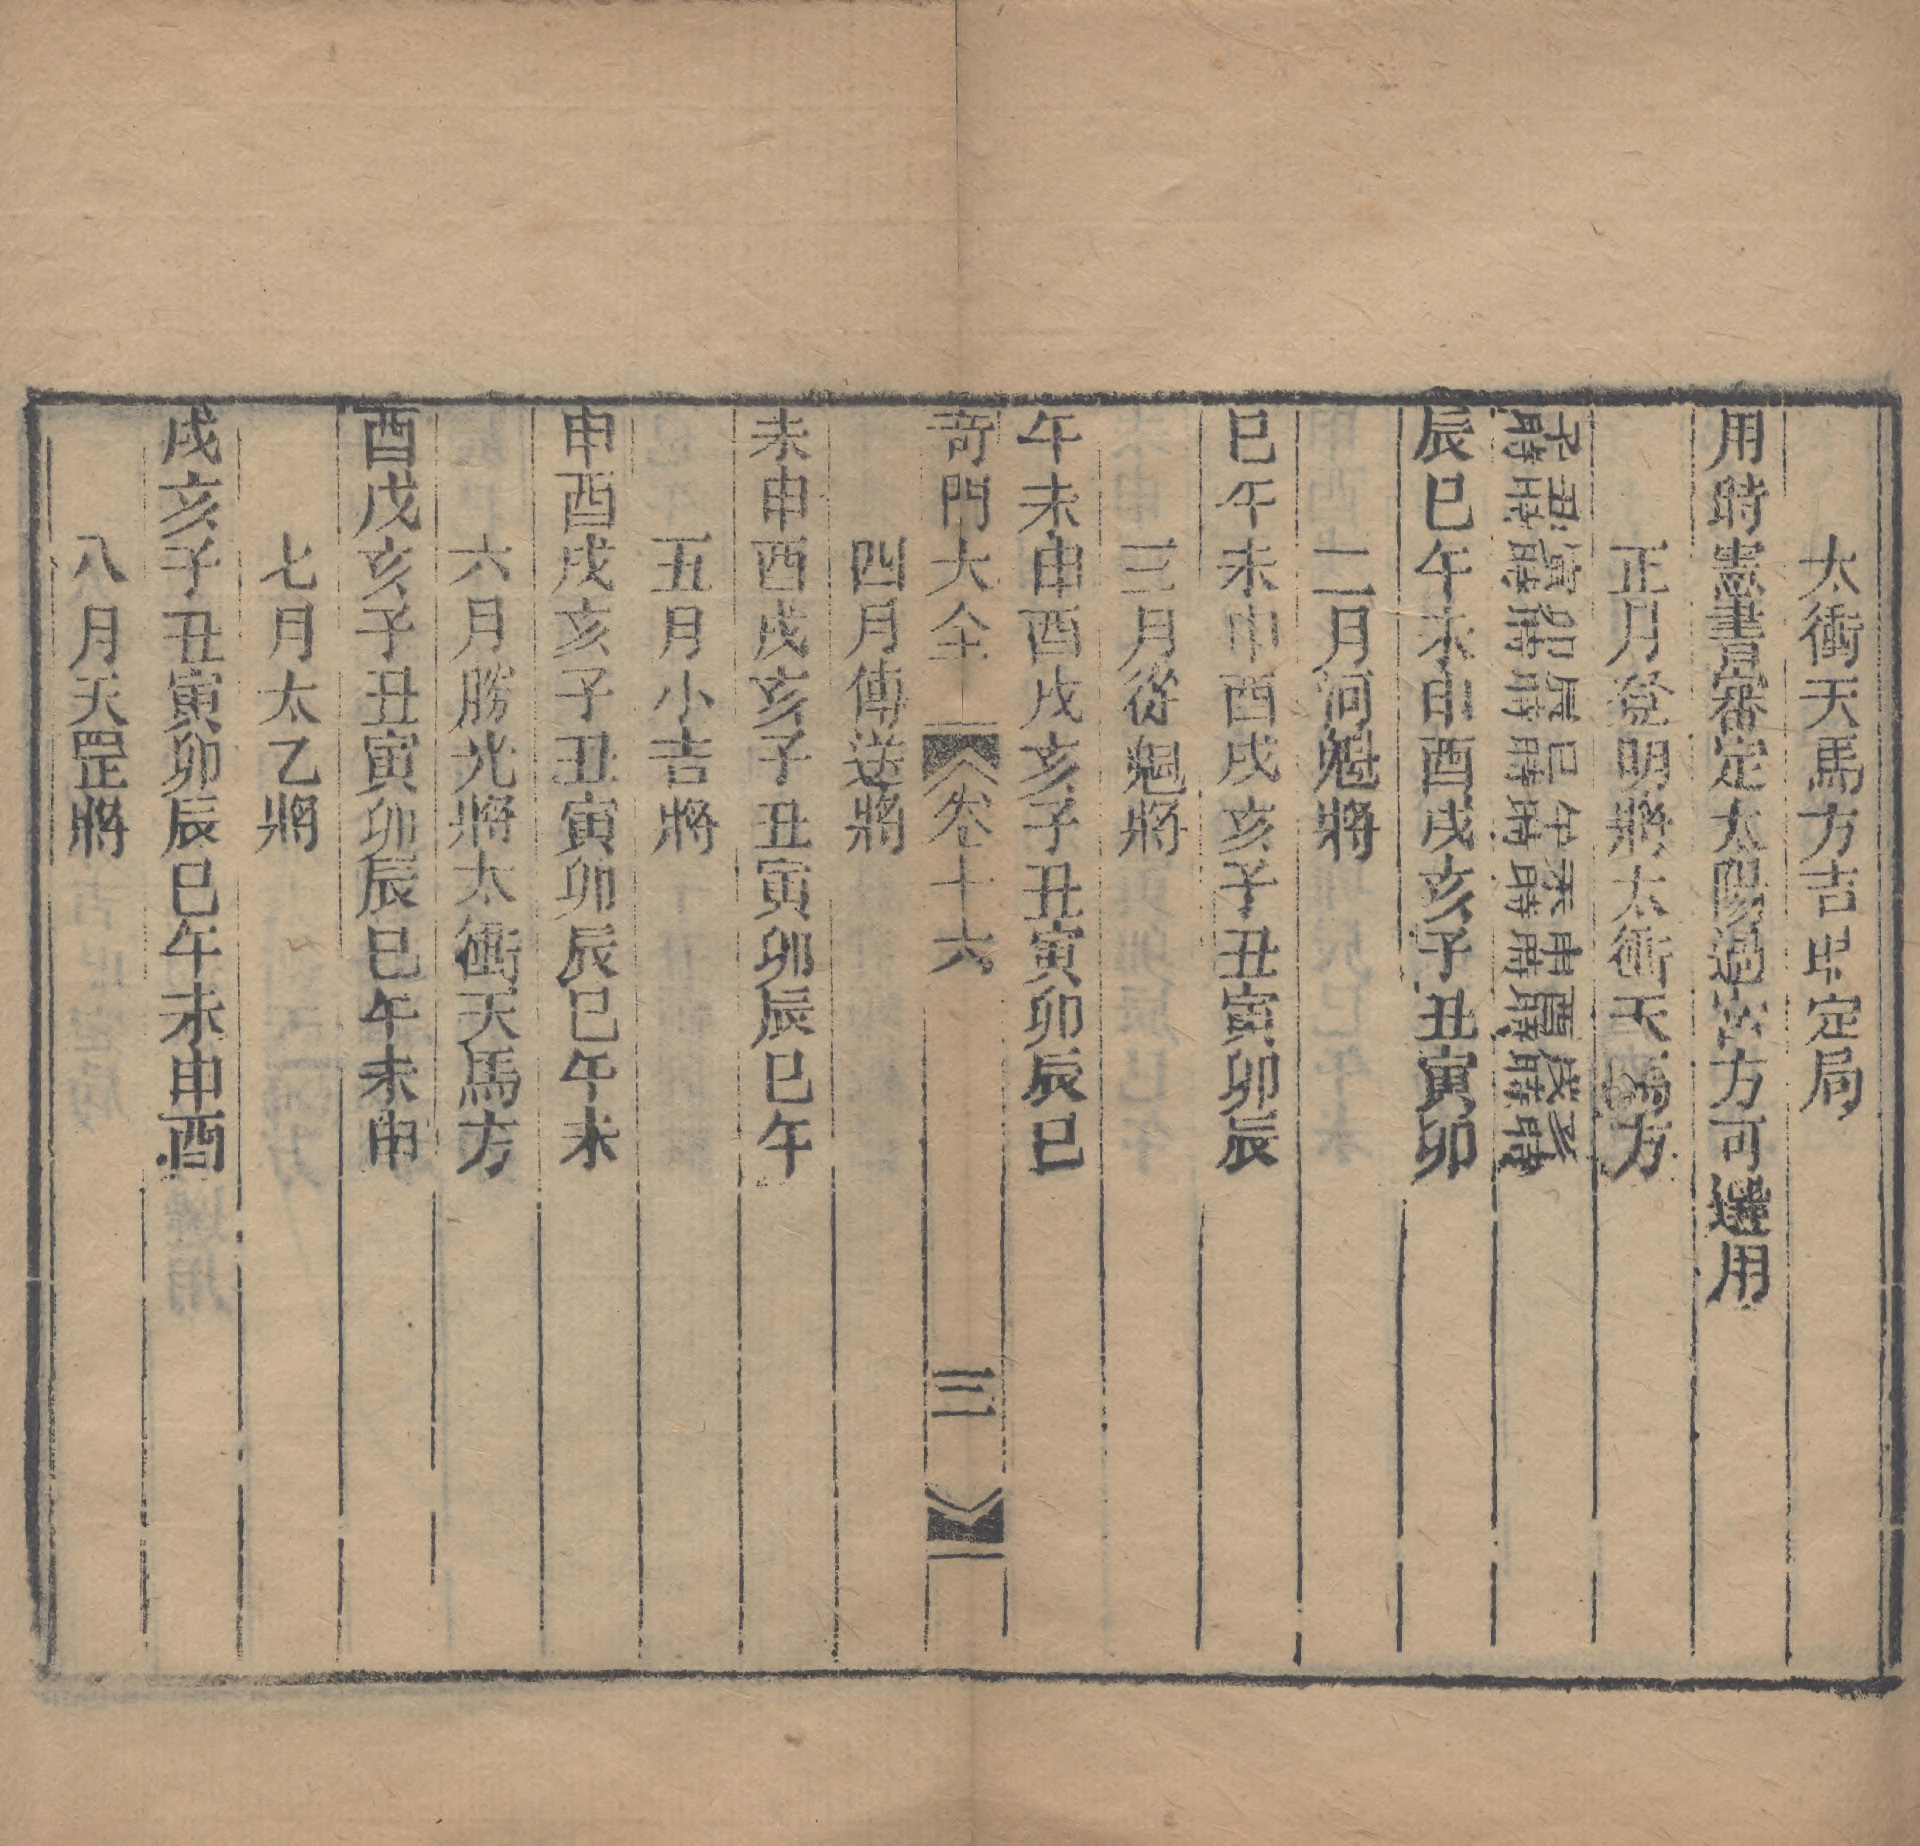 太衝天馬方吉定局
用時憲書審定太陽過宮方可選用
正月登明將太衝天馬方
子時丑時寅時卯時辰時巳時午時未時申時酉時戌時亥時
辰巳午未申酉戌亥子丑寅卯
二月河魁將
巳午未申酉戌亥子丑寅卯辰
三月從魁將
午未申酉戌亥子丑寅卯辰巳
奇門大全 卷十六 三
四月傳送將
未申酉戌亥子丑寅卯辰巳午
五月小吉將
申酉戌亥子丑寅卯辰巳午未
六月勝光將太衝天馬方
酉戌亥子丑寅卯辰巳午未申
七月太乙將
戌亥子丑寅卯辰巳午未申酉
八月天罡將